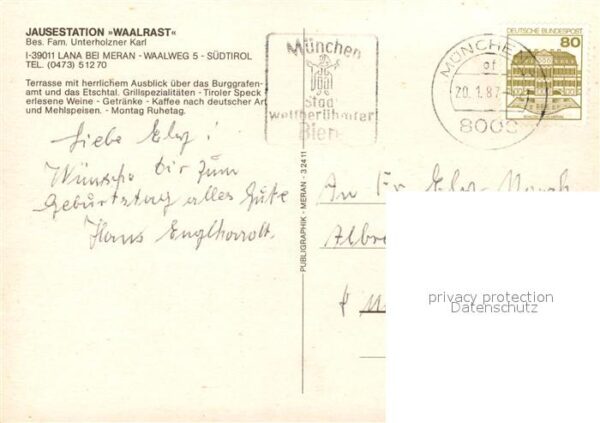 JAUSESTATION »WAALRAST«
Bes. Fam. Unterholzner Karl
I-39011 LANA BEI MERAN - WAALWEG 5 - SÜDTIROL
TEL. (0473) 51270
Terrasse mit herrlichem Ausblick über das Burggrafen-
amt und das Etschtal. Grillspezialitäten - Tiroler Speck
erlesene Weine - Getränke - Kaffee nach deutscher Art
und Mehlspeisen. - Montag Ruhetag.
München
Stadt
weltberühmter
Biere
MÜNCHEN
20.1.87
8000
DEUTSCHE BUNDESPOST
80
Liebe
Wünsche Dir zum
Geburtstag alles Gute
Hans
PUBLIGRAPHIK - MERAN - 32411
An Fr
privacy protection
Datenschutz